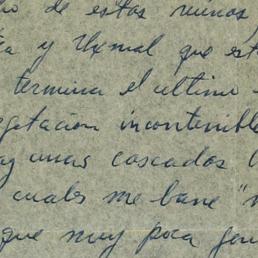 ho de estas ruinas,
y Uxmal que est
termina el ultimo
getacion incontenible
ay unas cascadas l
cuales me bañe "
que muy poca gen